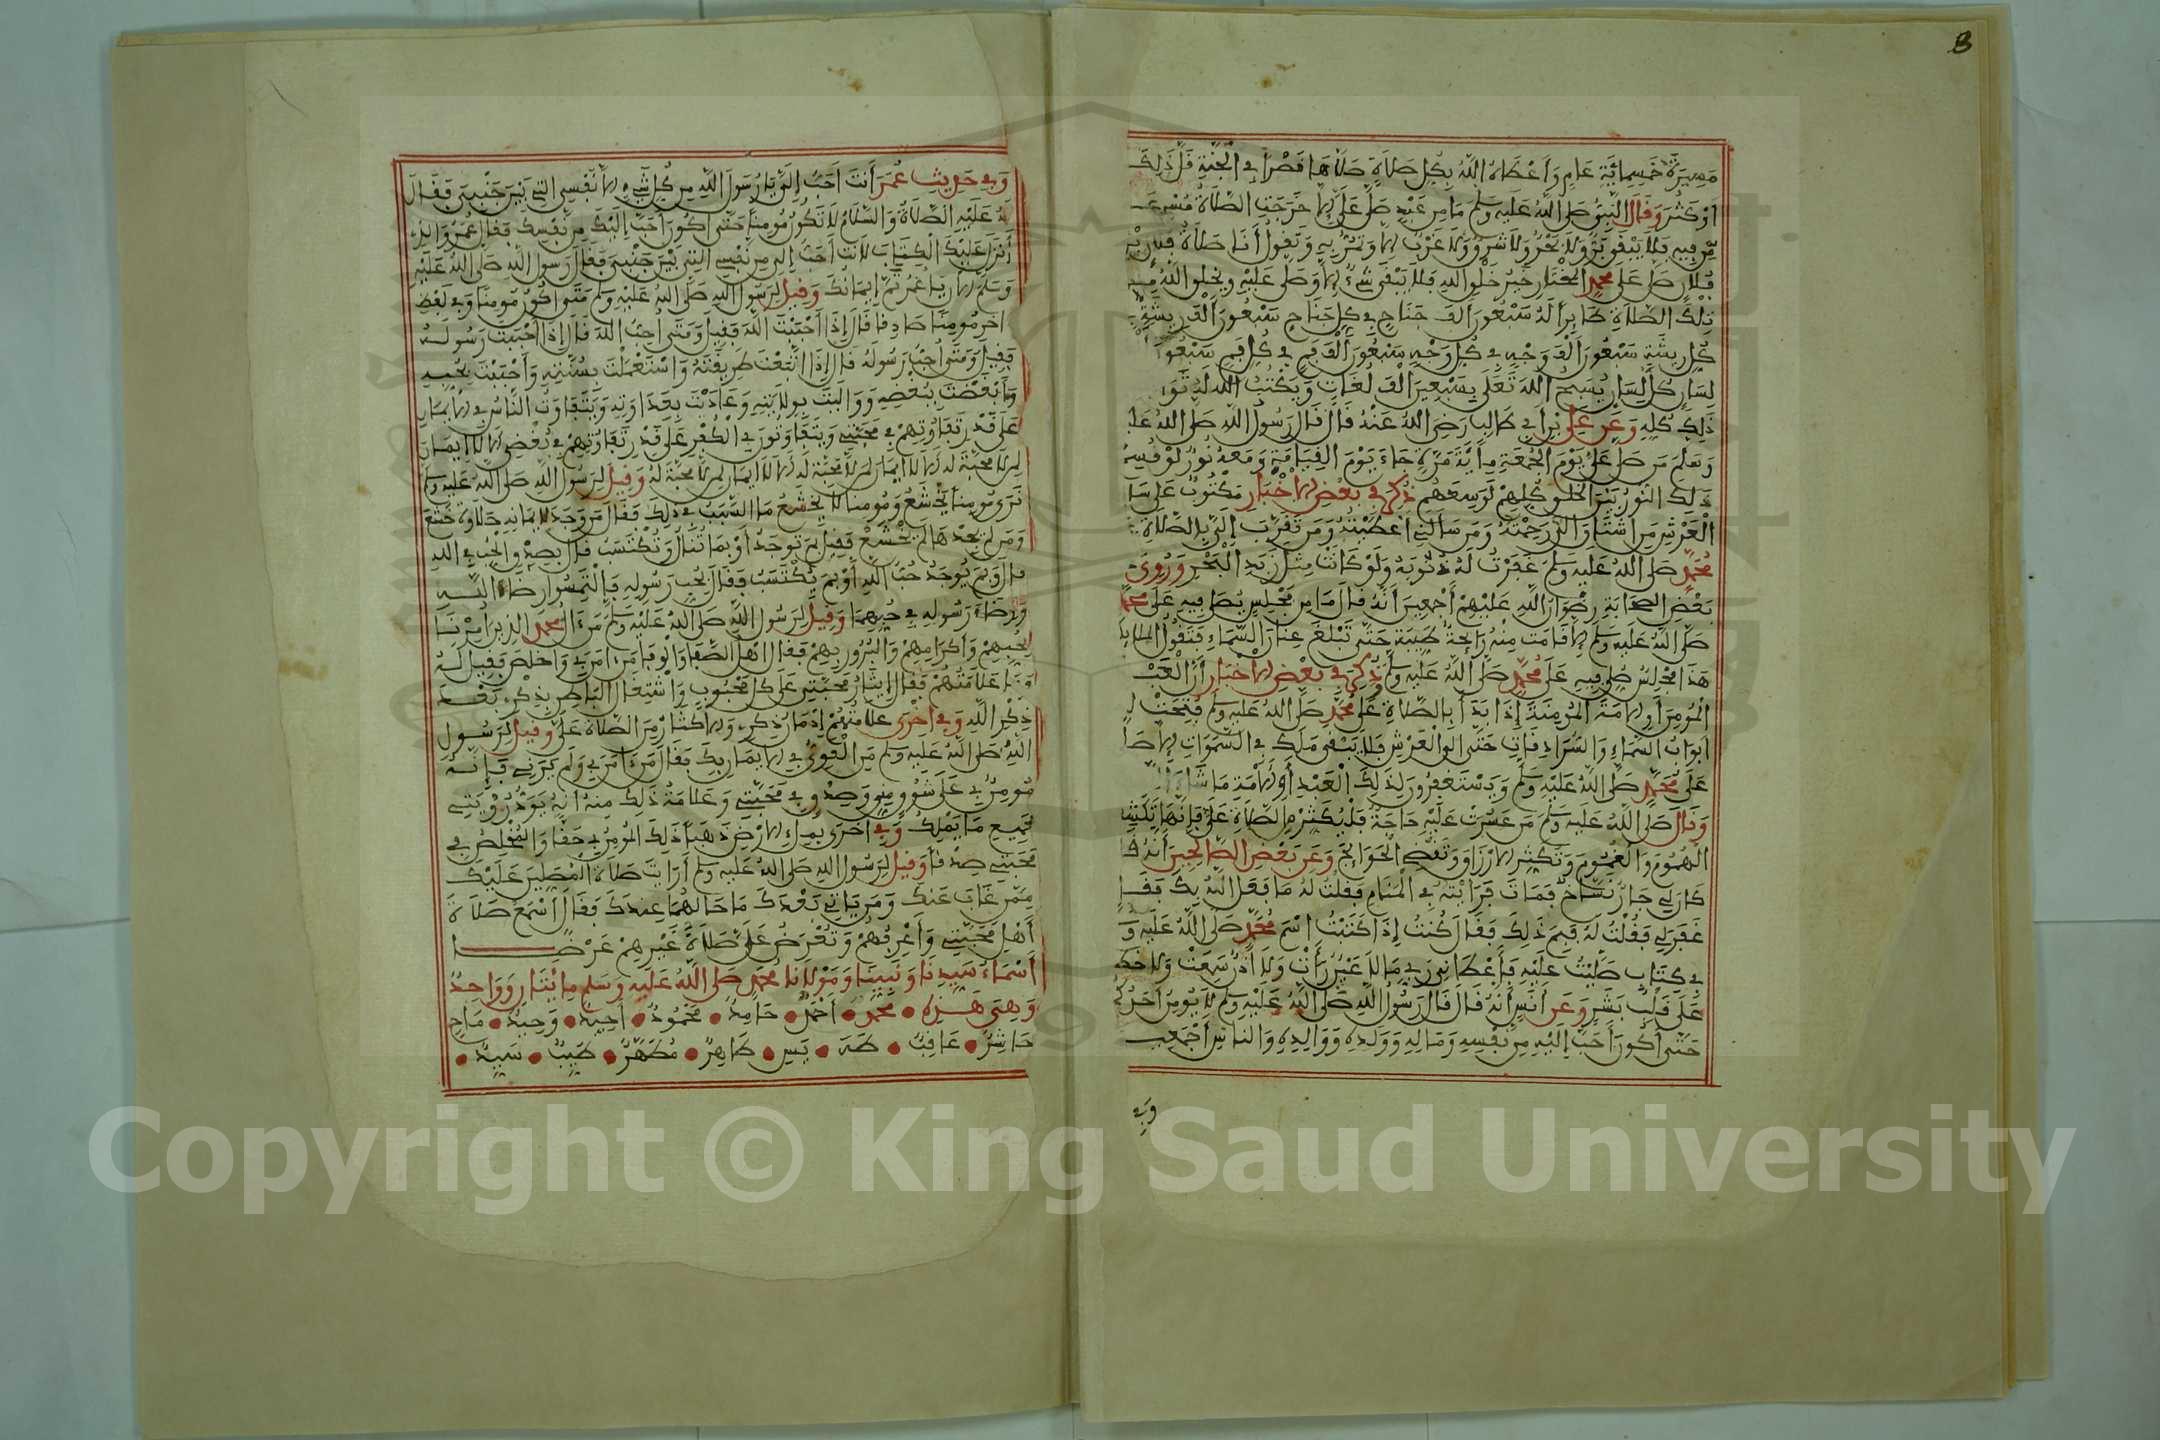 3
مسيرة خمسمائة عام وأعطاه الله بكل صلاة صلاها قصرا في الجنة قل ذلك
أو كثر وقال النبي صلى الله عليه وسلم ما من عبد صلى علي إلا خرجت الصلاة مسرعة
من فيه فلا يبقى بر ولا بحر ولا شرق ولا غرب إلا وتمر به وتقول أنا صلاة فلان بن
فلان صلى على محمد المختار خير خلق الله فلا يبقى شيء إلا وصلى عليه ويخلق الله من
تلك الصلاة طائرا له سبعون ألف جناح في كل جناح سبعون ألف ريشة في
كل ريشة سبعون ألف وجه في كل وجه سبعون ألف فم في كل فم سبعون
لسان كل لسان يسبح الله تعالى بسبعين ألف لغات ويكتب الله له ثواب
ذلك كله وعن علي بن أبي طالب رضي الله عنه قال قال رسول الله صلى الله عليه
وسلم من صلى علي يوم الجمعة مائة مرة جاء يوم القيامة ومعه نور لو قسم
ذلك النور بين الخلق كلهم لوسعهم ذكر في بعض الأخبار مكتوب على ساق
العرش من اشتاق إلي رحمته ومن سألني أعطيته ومن تقرب إلي بالصلاة على
محمد صلى الله عليه وسلم غفرت له ذنوبه ولو كانت مثل زبد البحر وروي عن
بعض الصحابة رضوان الله عليهم أجمعين أنه قال ما من مجلس يصلى فيه على محمد
صلى الله عليه وسلم إلا قامت منه رائحة طيبة حتى تبلغ عنان السماء فتقول الملائكة
هذا مجلس صلي فيه على محمد صلى الله عليه وسلم ذكر في بعض الأخبار أن العبد
المؤمن أو الأمة المؤمنة إذا بدأ بالصلاة على محمد صلى الله عليه وسلم فتحت له
أبواب السماء والسرادقات حتى إلى العرش فلا يبقى ملك في السموات إلا صلى
على محمد صلى الله عليه وسلم ويستغفرون لذلك العبد أو الأمة ما شاء الله
وقال صلى الله عليه وسلم من عسرت عليه حاجة فليكثر من الصلاة علي فإنها تكشف
الهموم والغموم وتكثر الأرزاق وتقضي الحوائج وعن بعض الصالحين أنه قال
كان لي جار نساخ فمات فرأيته في المنام فقلت له ما فعل الله بك فقال
غفر لي فقلت له فبم ذلك فقال كنت إذا كتبت اسم محمد صلى الله عليه وسلم
في كتاب صليت عليه فأعطاني ربي ما لا عين رأت ولا أذن سمعت ولا خطر
على قلب بشر وعن أنس أنه قال قال رسول الله صلى الله عليه وسلم لا يؤمن أحدكم
حتى أكون أحب إليه من نفسه وماله وولده ووالده والناس أجمعين
وفي
وفي حديث عمر أنت أحب إلي يا رسول الله من كل شيء إلا نفسي التي بين جنبي فقال
له عليه الصلاة والسلام لا تكون مؤمنا حتى أكون أحب إليك من نفسك فقال عمر والذي
أنزل عليك الكتاب لأنت أحب إلي من نفسي التي بين جنبي فقال رسول الله صلى الله عليه
وسلم الآن يا عمر تم إيمانك وقيل لرسول الله صلى الله عليه وسلم متى أكون مؤمنا وفي لفظ
آخر مؤمنا صادقا قال إذا أحببت الله فقيل ومتى أحب الله قال إذا أحببت رسوله
فقيل ومتى أحب رسوله قال إذا اتبعت طريقته واستعملت بسنته وأحببت بحبه
وأبغضت ببغضه وواليت بولايته وعاديت بعداوته ويتفاوت الناس في الإيمان
على قدر تفاوتهم في محبتي ويتفاوتون في الكفر على قدر تفاوتهم في بغضي ألا لا إيمان
لمن لا محبة له ألا لا إيمان لمن لا محبة له ألا لا إيمان لمن لا محبة له وقيل لرسول الله صلى الله عليه وسلم
نرى مؤمنا يخشع ومؤمنا لا يخشع ما السبب في ذلك فقال من وجد لإيمانه حلاوة خشع
ومن لم يجدها لم يخشع فقيل بم توجد أو بما تنال وتكتسب قال بصدق الحب في الله
قال وبم يوجد حب الله أو بم يكتسب فقال بحب رسوله فالتمسوا رضاء الله
ورضاء رسوله في حبهما وقيل لرسول الله صلى الله عليه وسلم من آل محمد الذين أمرنا
بحبهم وإكرامهم والبرور بهم فقال أهل الصفاء والوفاء من آمن بي وأخلص فقيل له
وما علامتهم فقال إيثار محبتي على كل محبوب واشتغال الباطن بذكري بعد
ذكر الله وفي أخرى علامتهم إدمان ذكري والإكثار من الصلاة علي وقيل لرسول
الله صلى الله عليه وسلم من القوي في الإيمان بك فقال من آمن بي ولم يرني فإنه
مؤمن بي على شوق مني وصدق في محبتي وعلامة ذلك منه أنه يود رؤيتي
بجميع ما يملك وفي أخرى بملء الأرض ذهبا ذلك المؤمن بي حقا والمخلص في
محبتي صدقا وقيل لرسول الله صلى الله عليه وسلم أرأيت صلاة المصلين عليك
ممن غاب عنك ومن يأتي بعدك ما حالهما عندك فقال أسمع صلاة
أهل محبتي وأعرفهم وتعرض علي صلاة غيرهم عرضا
أسماء سيدنا ونبينا ومولانا محمد صلى الله عليه وسلم مائتان وواحد
وهي هذه محمد أحمد حامد محمود أحيد وحيد ماح
حاشر عاقب طه يس طاهر مطهر طيب سيد
Copyright © King Saud University